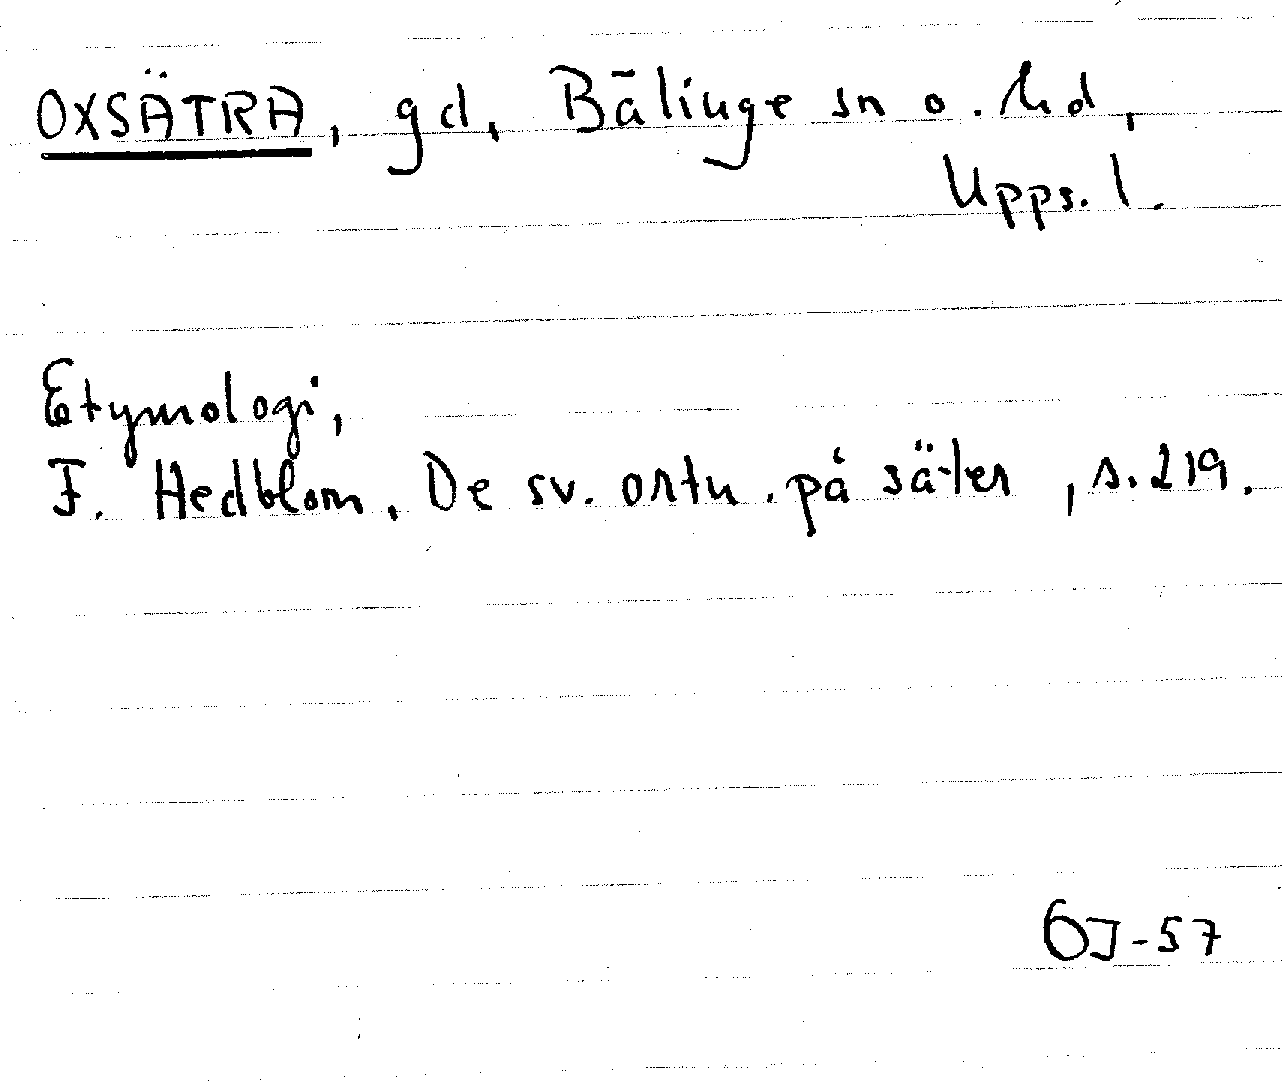 OXSÄTRA, gd, Bälinge sn o. hd,
Upps. l.
Etymologi,
F. Hedblom, De sv. ortn. på säter, s. 219.
ÖJ-57